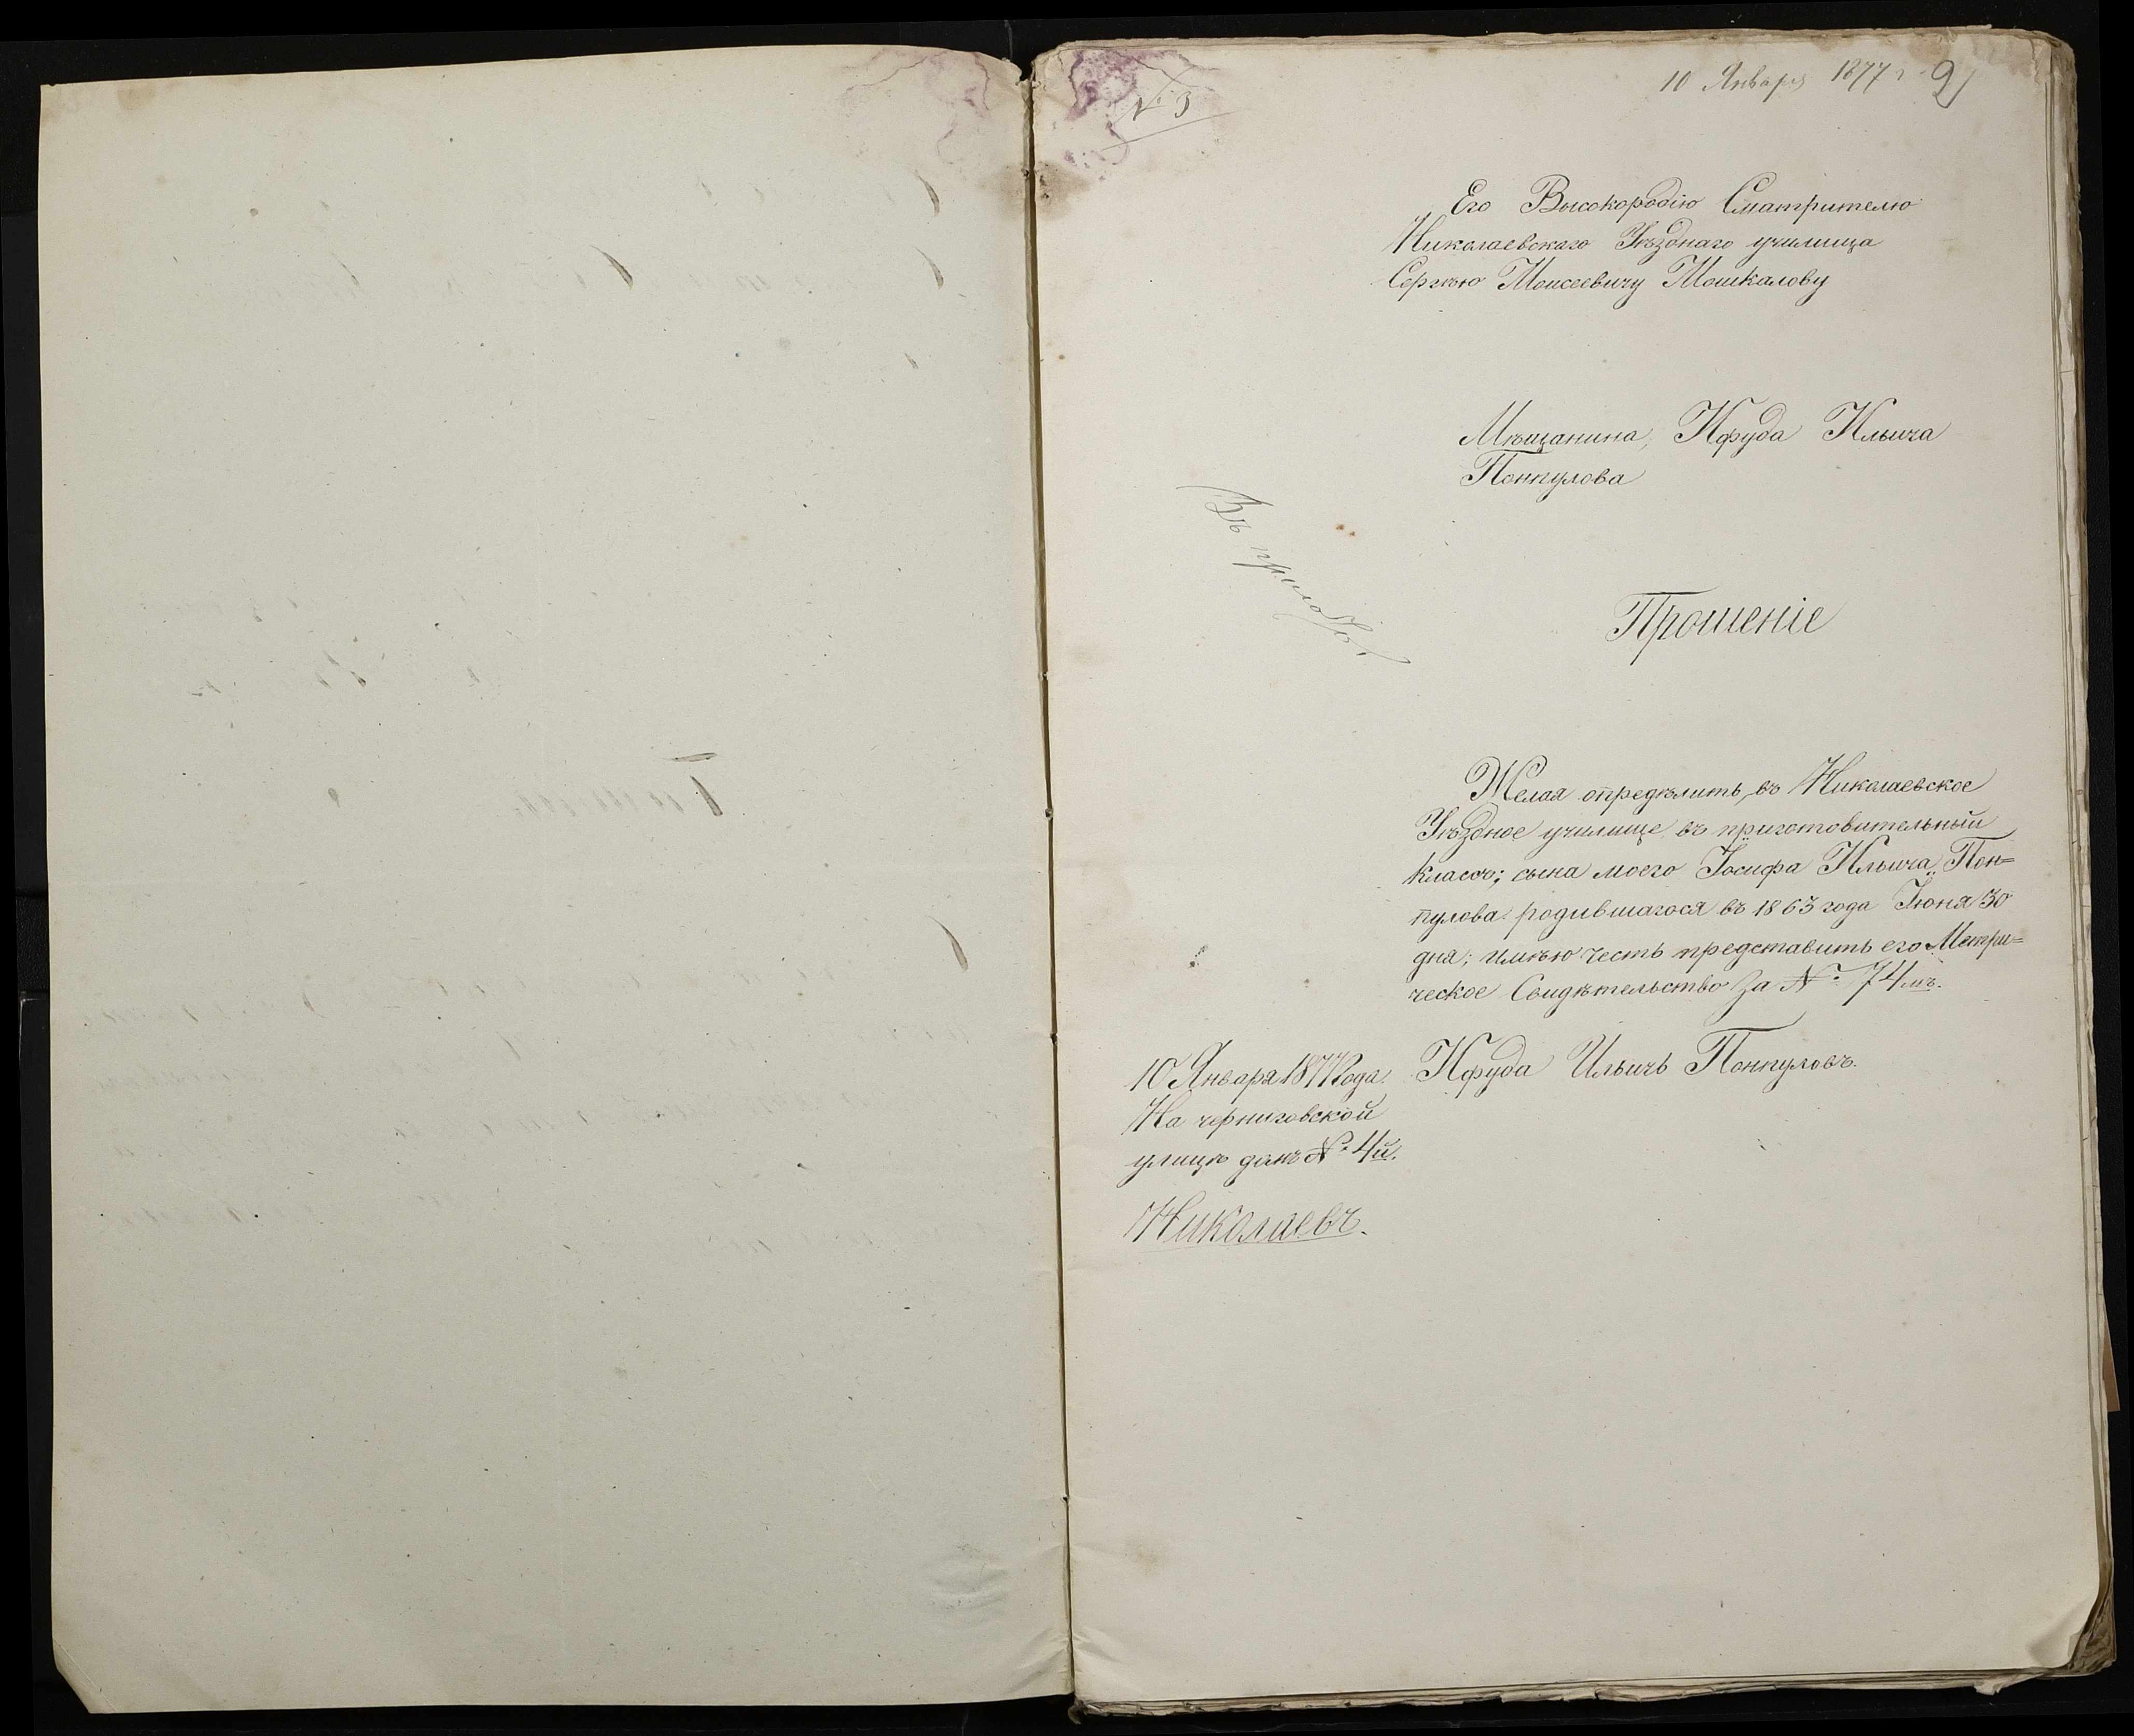 № 3
10 Января 1877 г. 9
Его Высокородію Сматрителю
Николаевскаго Уѣзднаго училища
Сергѣю Моисеевичу Мошкалову
Мѣщанина, Нфуда Ильича
Понпулова
Въ приготов.
Прошеніе
Желая опредѣлить, въ Николаевское
Уѣздное училище, въ приготовительный
классъ; сына моего Іосифа Ильича Пон=
пулова. родившагося въ 1863 года Іюня 30
дня; имѣю честь представить его Метри=
ческое Свидѣтельство За № 74мъ.
Нфуда Ильичъ Понпуловъ.
10 Января 1877 года.
На черниговской
улицѣ домъ № 4й.
Николаевъ.